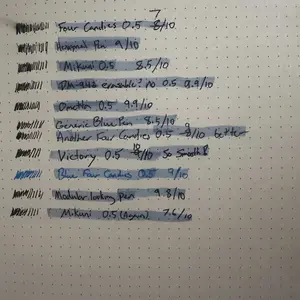 7
Four Candies 0.5 8/10
Pen 9/10
Mikuni 0.5 8.5/10
erasable? no 0.5 9.9/10
0.5 9.9/10
Generic Blue Pen 8.5/10
9
Another Four Candies 0.5 /10 better
10
Victory 0.5 /10 So Smooth!
Blue Four Candies 0.5 9/10
Modular looking pen 9.8/10
Mikuni 0.5 (Again) 7.6/10